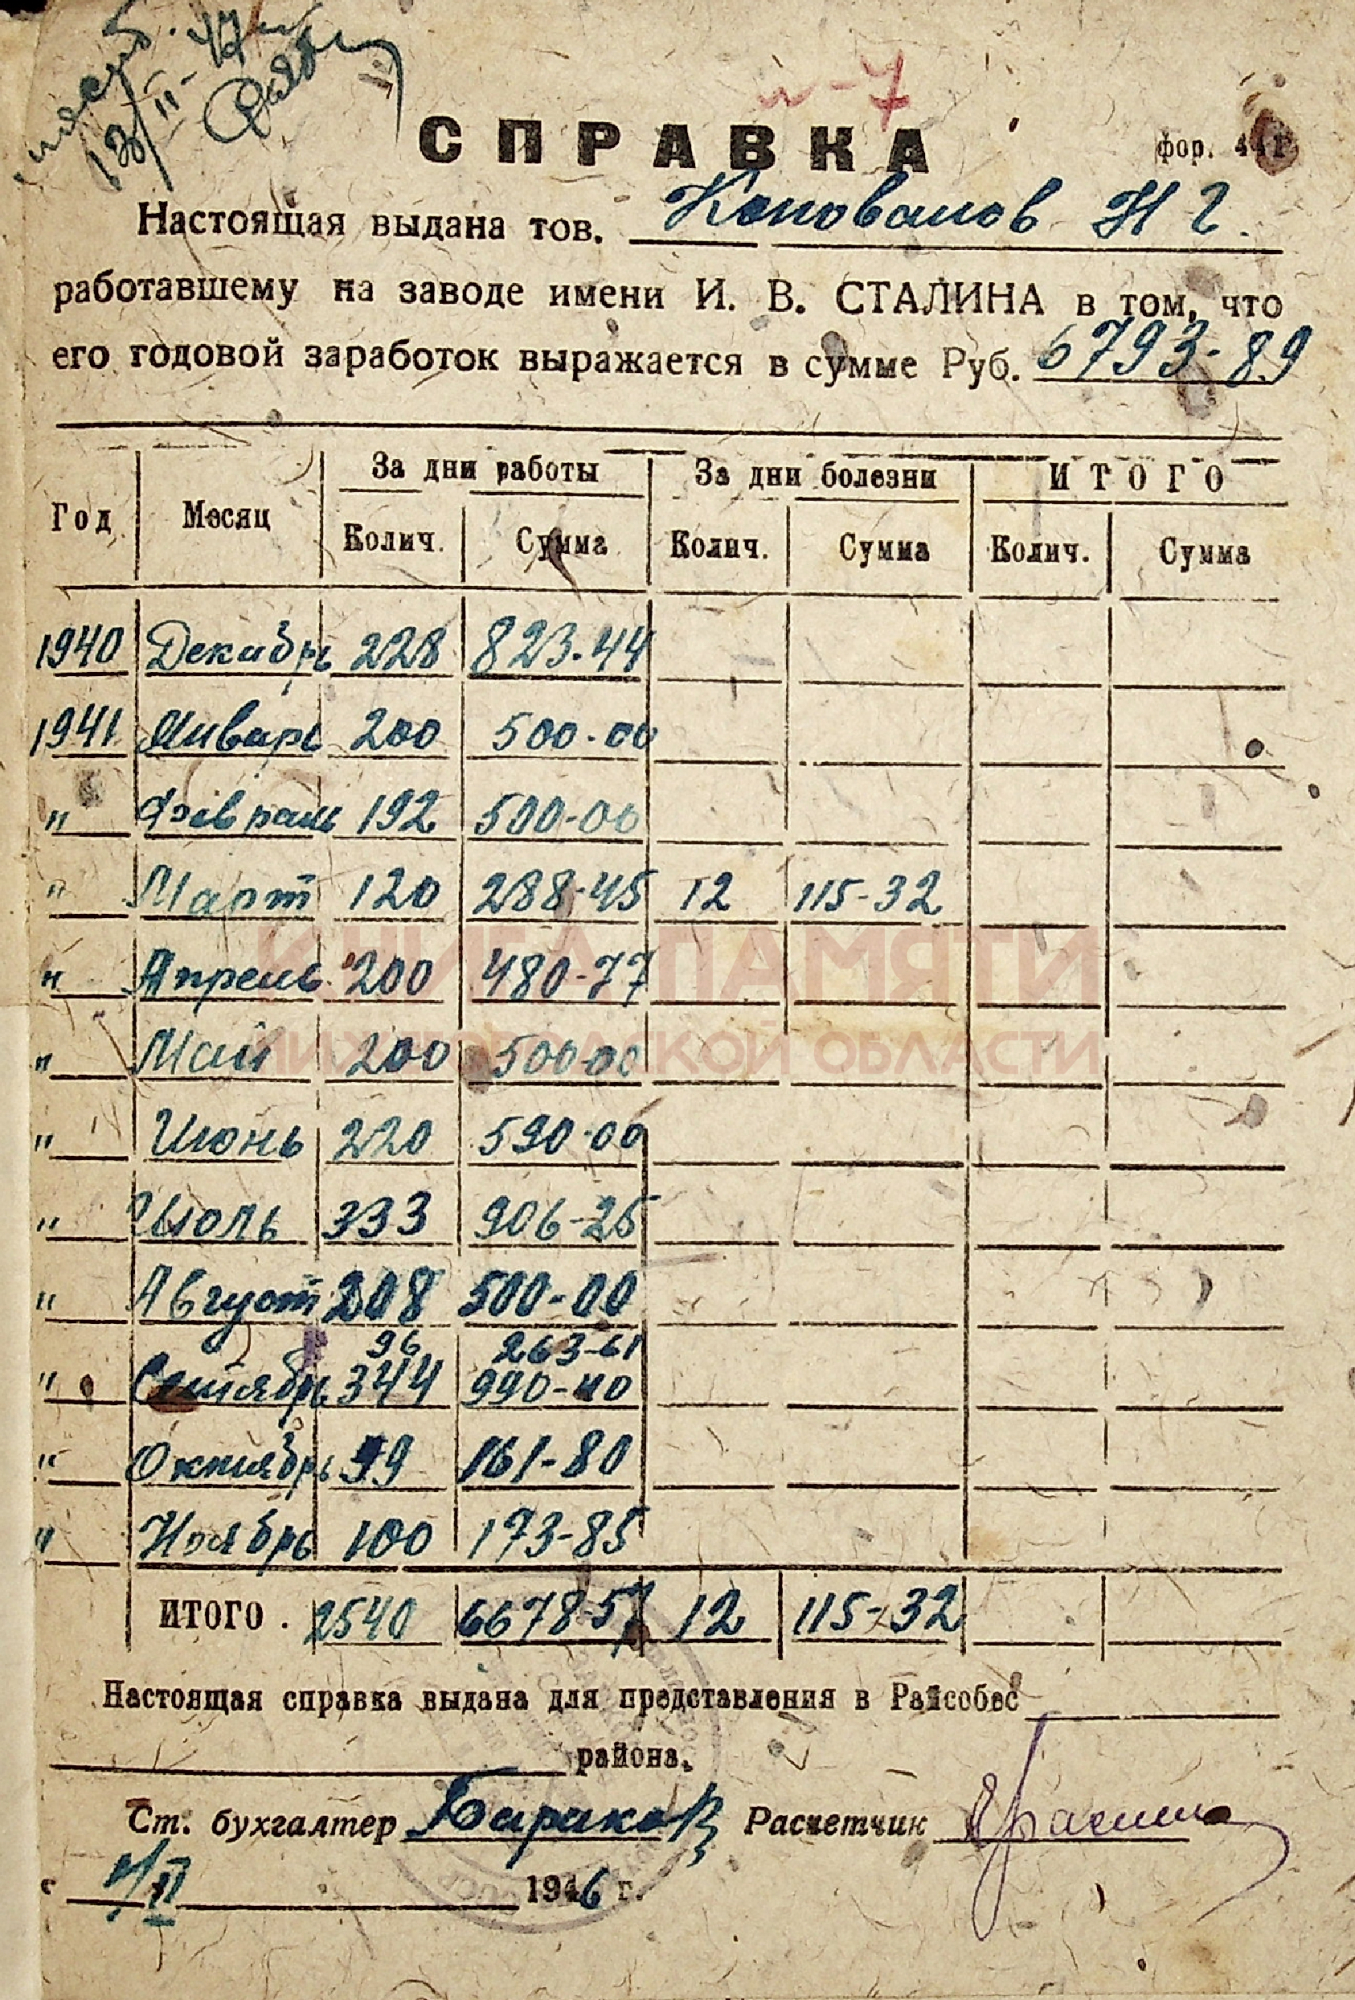 н-7
СПРАВКА
фор. 44 г
Настоящая выдана тов. Коновалов Н Г.
работавшему на заводе имени И. В. СТАЛИНА в том, что
его годовой заработок выражается в сумме Руб. 6793-89
Год Месяц За дни работы За дни болезни ИТОГО
Колич. Сумма Колич. Сумма Колич. Сумма
1940 Декабрь 228 823.44
1941 Январь 200 500-00
" Февраль 192 500-00
" Март 120 288-45 12 115-32
" Апрель 200 480-77
" Май 200 500-00
" Июнь 220 590-00
" Июль 333 906-25
" Август 208 500-00
96 263-61
" Сентябрь 344 990-40
" Октябрь 99 161-80
" Ноябрь 100 173-85
ИТОГО . 2540 6678-57 12 115-32
Настоящая справка выдана для представления в Райсобес
района.
Ст. бухгалтер Расчетчик
4/II 1946 г.
КНИГА ПАМЯТИ
НИЖЕГОРОДСКОЙ ОБЛАСТИ